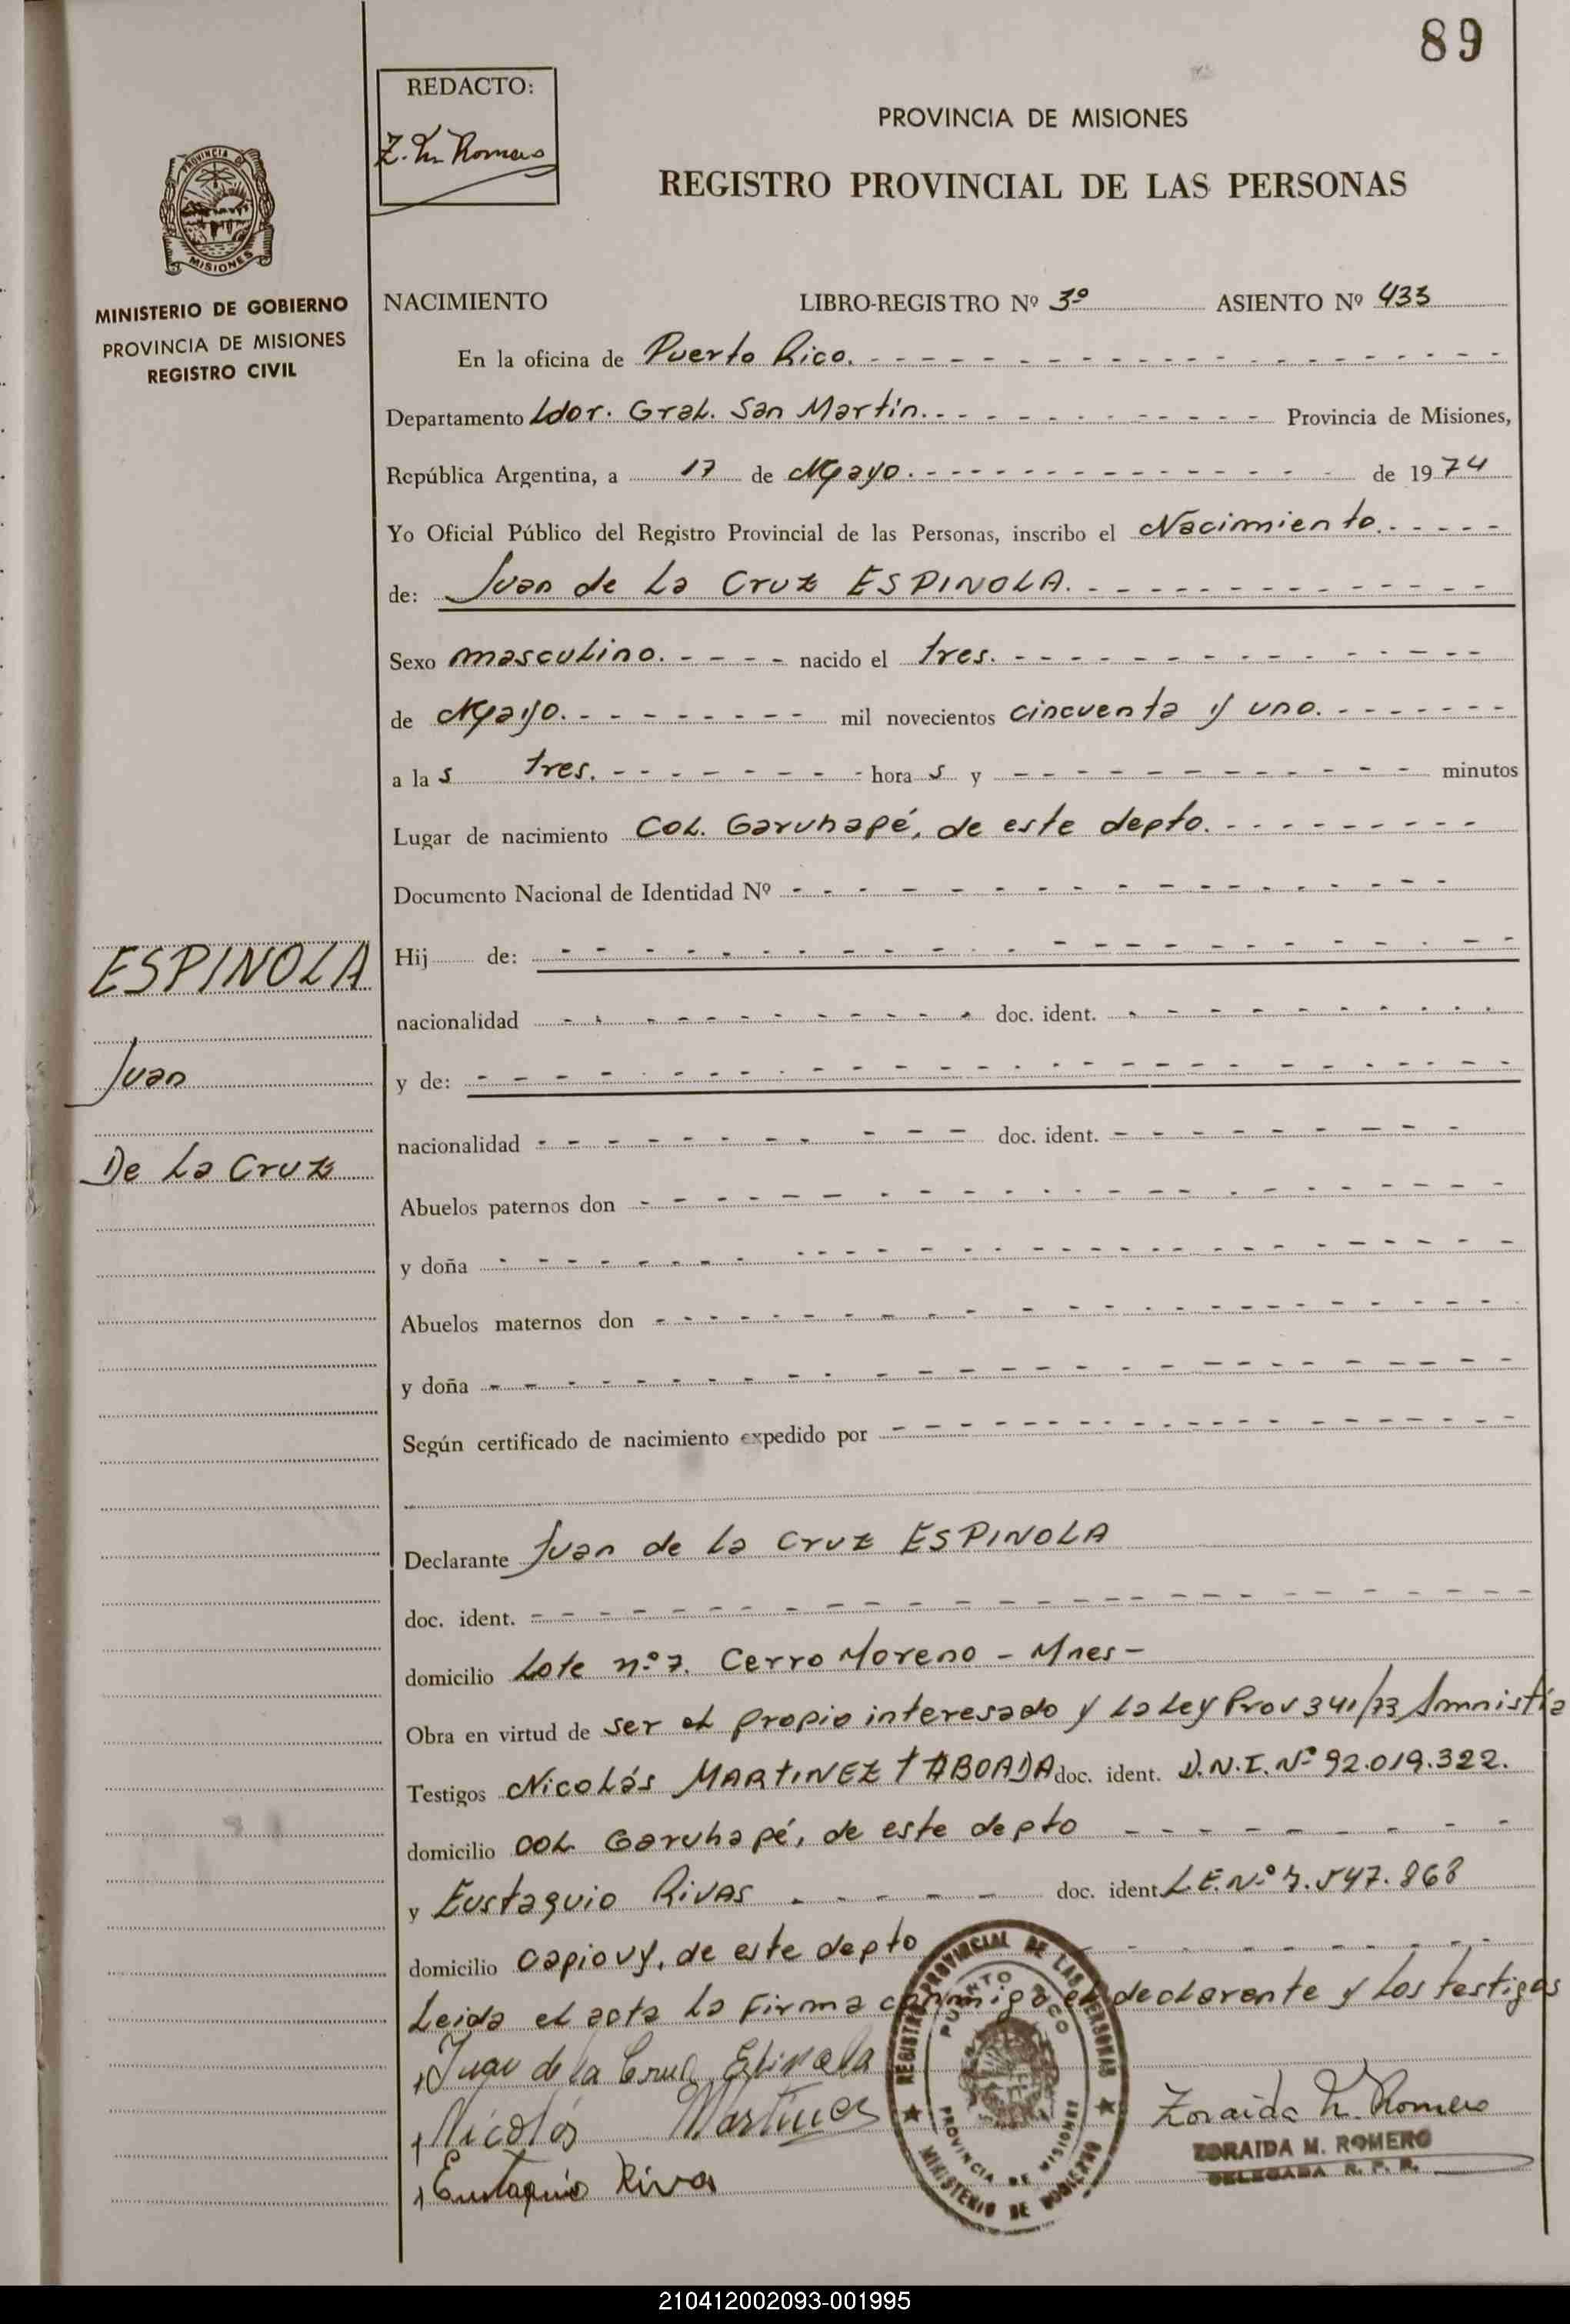 89
REDACTO:
Z. M. Romero
PROVINCIA DE MISIONES
REGISTRO PROVINCIAL DE LAS PERSONAS
PROVINCIA DE
MISIONES
MINISTERIO DE GOBIERNO
PROVINCIA DE MISIONES
REGISTRO CIVIL
NACIMIENTO LIBRO-REGISTRO Nº 3º ASIENTO Nº 433
En la oficina de Puerto Rico.
Departamento Ldor. Gral. San Martín. Provincia de Misiones,
República Argentina, a 17 de Mayo. de 1974
Yo Oficial Público del Registro Provincial de las Personas, inscribo el Nacimiento.
de: Juan de La Cruz ESPINOLA.
Sexo masculino. nacido el tres.
de Mayo. mil novecientos cincuenta y uno.
a las tres. horas y minutos
Lugar de nacimiento Col. Garuhapé, de este depto.
Documento Nacional de Identidad Nº
ESPINOLA
Juan
De La Cruz
Hij de:
nacionalidad doc. ident.
y de:
nacionalidad doc. ident.
Abuelos paternos don
y doña
Abuelos maternos don
y doña
Según certificado de nacimiento expedido por
Declarante Juan de la Cruz ESPINOLA
doc. ident.
domicilio Lote nº 7. Cerro Moreno - Mnes -
Obra en virtud de ser el propio interesado y la Ley Prov 341/73 Amnistía
Testigos Nicolás MARTINEZ TABOADA doc. ident. D.N.I. Nº 92.019.322.
domicilio Col Garuhapé, de este depto
y Eustaquio Rivas doc. ident. L.E. Nº 7.547.868
domicilio Capiovy, de este depto
Leida el acta la firma conmigo el declarante y los testigos
Juan de la Cruz Espinola
Nicolás Martinez
Eustaquio Rivas
REGISTRO PROVINCIAL DE LAS PERSONAS
PUERTO RICO
PROVINCIA DE MISIONES
MINISTERIO DE GOBIERNO
Zoraida M. Romero
ZORAIDA M. ROMERO
DELEGADA R. P. P.
210412002093-001995